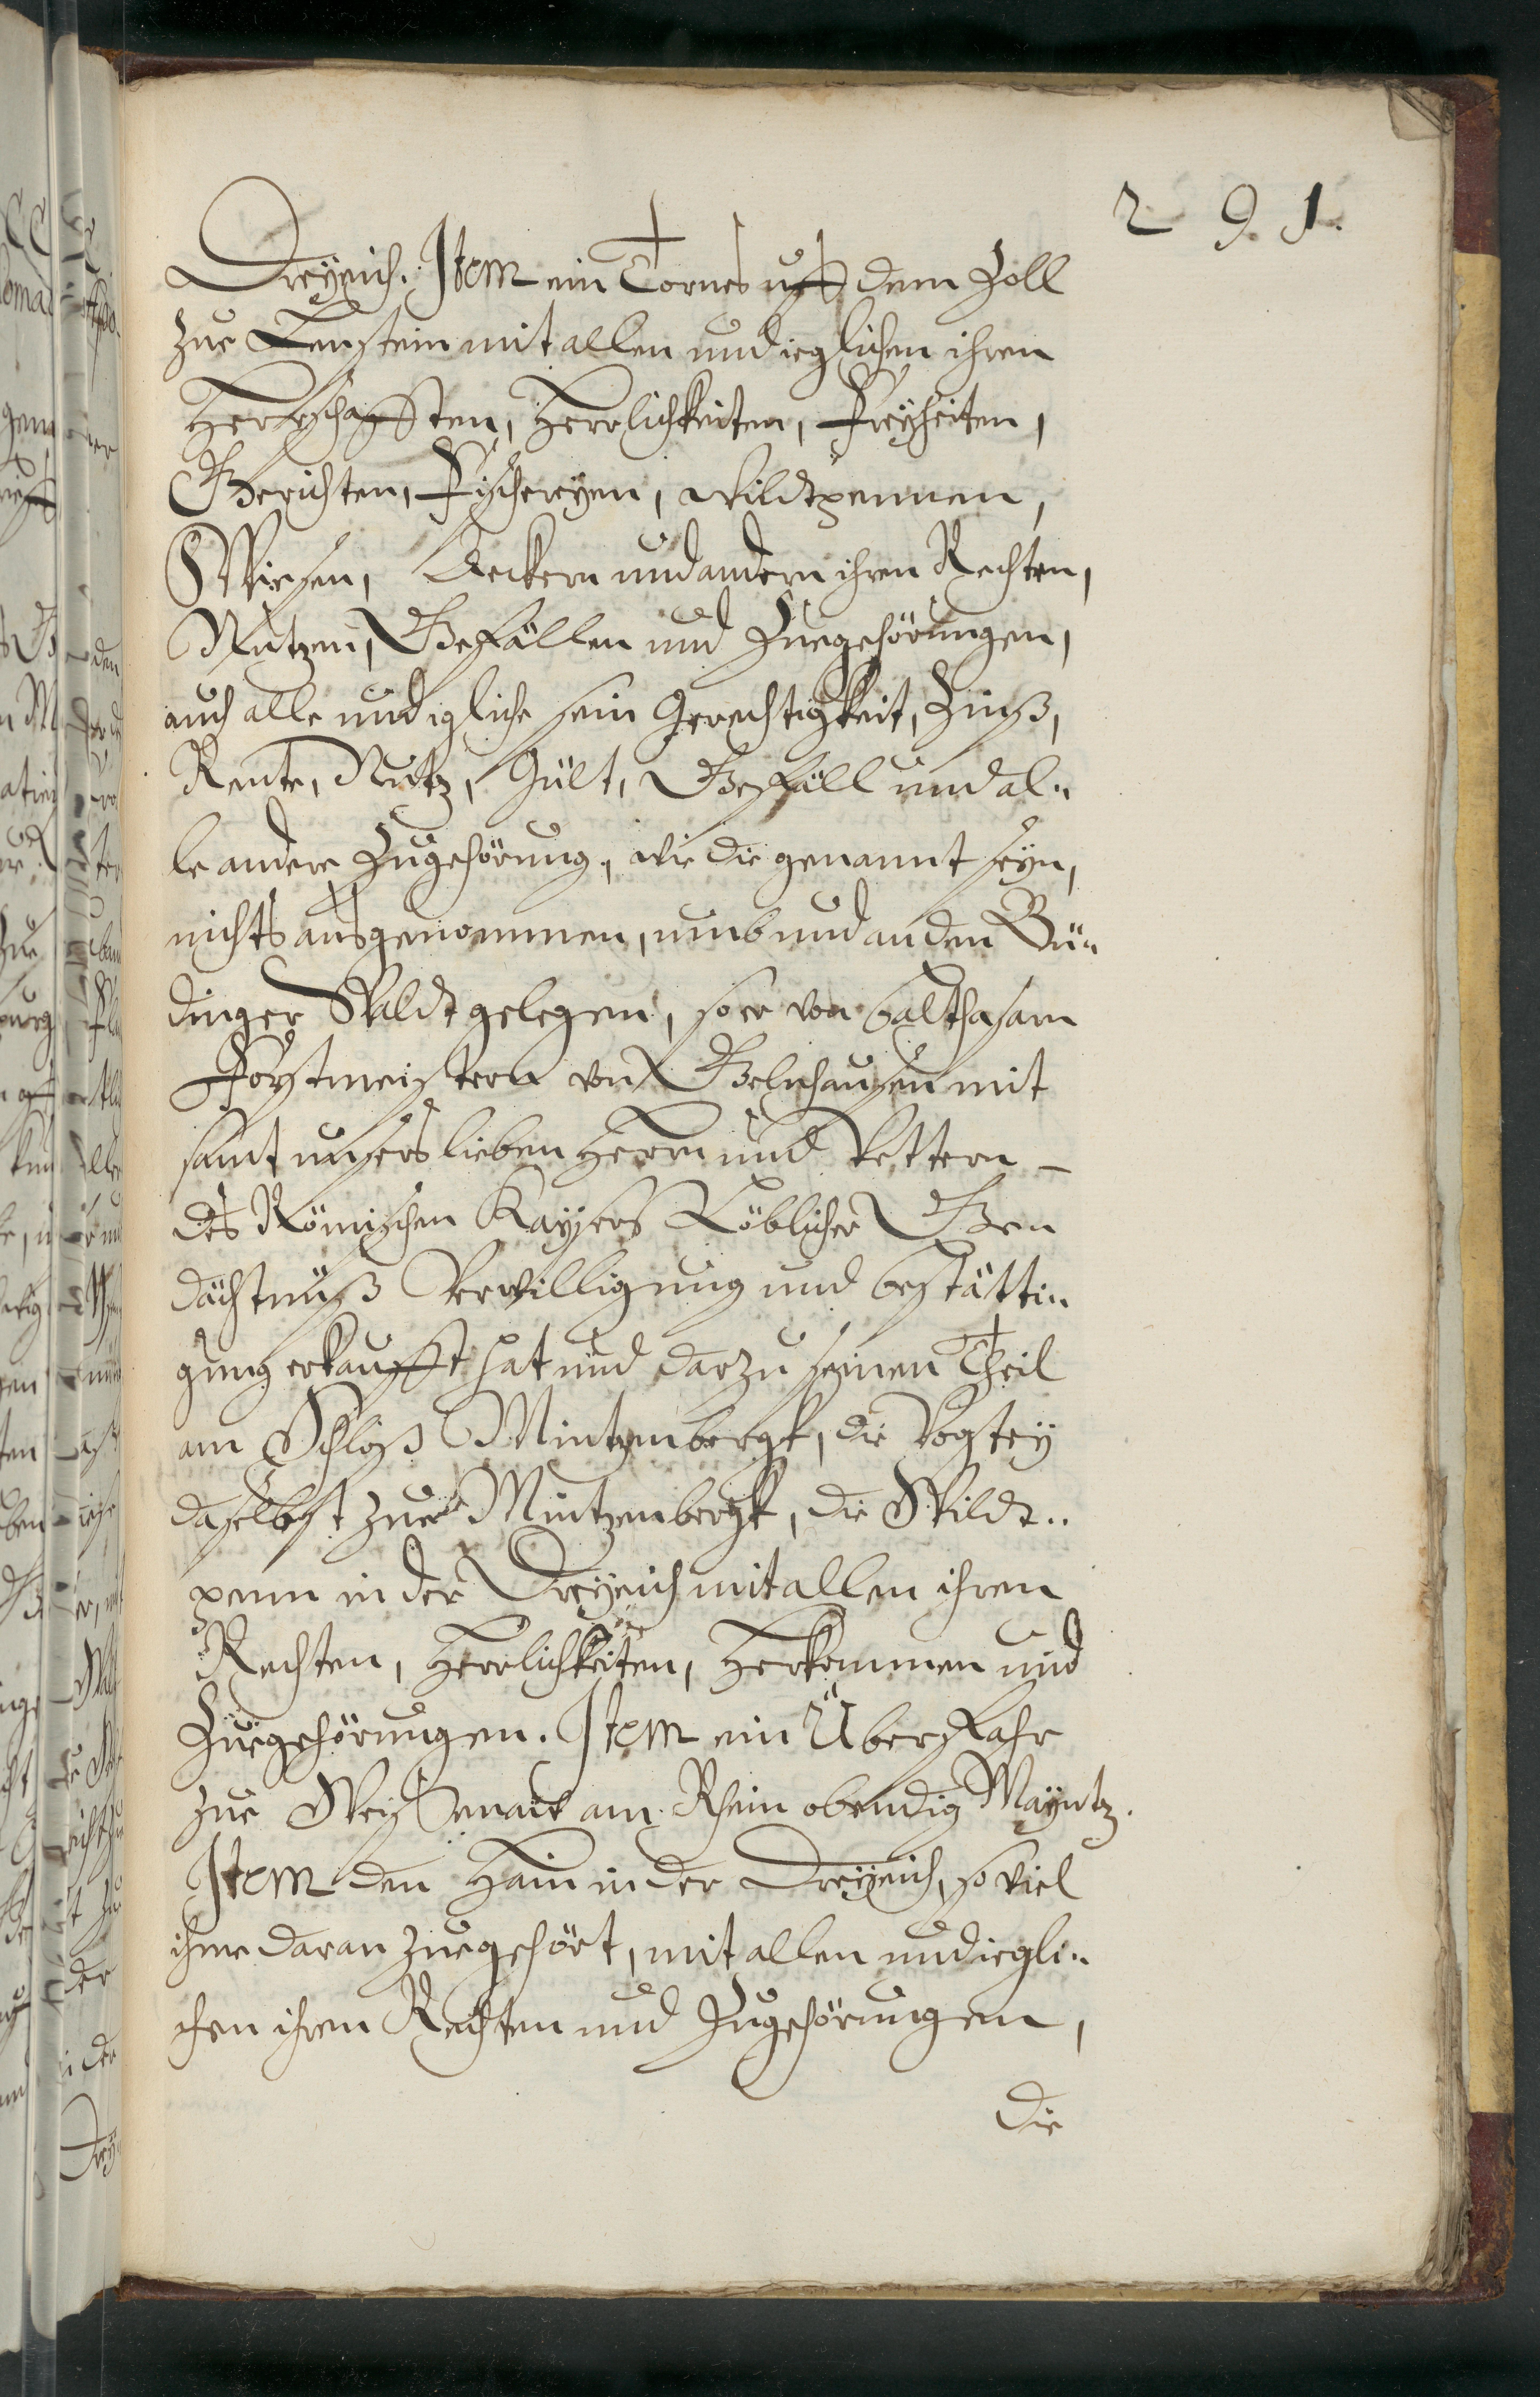 291.
Dreyeich. Item ein Tornes uff dem Zoll
zue Lenstein mit allen und ieglichen ihren
Herrschafften, Herrlichkeiten, Freyheiten,
Gerichten, Fischereyen, wildtpennen,
Wiesen, Aeckern und andern ihren Rechten,
Nutzen, Gefällen und Zuegehörungen,
auch alle und igliche sein Gerechtigkeit, Zinß,
Rente, Nutz, Gült, Gefäll und al-
le andere Zugehörung, wie die genannt seyn,
nichts ausgenommen, umb und an den Bü-
dinger Waldt gelegen, so er von Balthasarn
Forstmeistern von Gelnhausen mit
samt unsers lieben Herrn und Vettern -
des Römischen Kaysers Löblicher Ge-
dächtnuß Verwilligung und bestätti-
gung erkaufft hat und darzu seinen Theil
am Schloß Mintzenbergk, die Vogtey
daselbst zue Mintzenbergk, die Wildt-
penn in der Dreyeich mit allen ihren
Rechten, Herrlichkeiten, Herkommen und
Zuegehörungen. Item ein Überfahr
zue Weysenau am Rhein obendig Mayntz.
Item den Hain in der Dreyeich, so viel
ihme daran zuegehört, mit allen und iegli-
chen ihren Rechten und Zugehörungen,
die